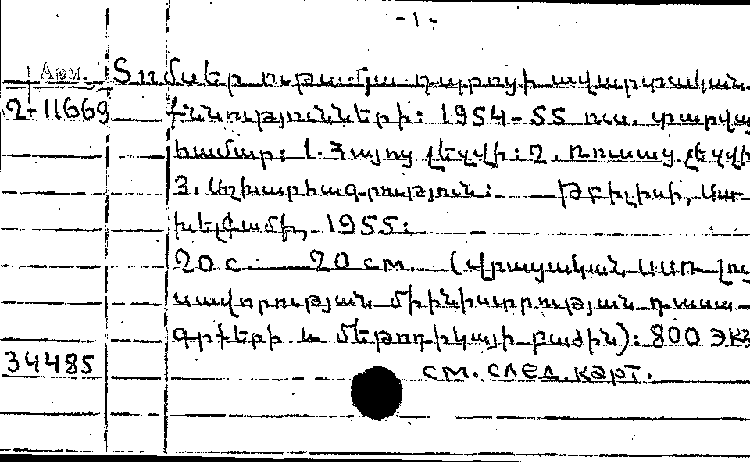 - 1 -
Арм. Տոմսեր ութամյա դպրոցի ավարտական
2-11669 քննությունների: 1954-55 ուս. տարվա
համար: 1. Հայոց լեզվի: 2. Ռուսաց լեզվի
3. Աշխարհագրություն: Թբիլիսի,
1955:
20 с. 20 см. (Վրացական ՍՍՌ լու
սավորության միինիստրության դասա-
գրքերի և մեթոդիկայի բաժին): 800 экз
34485 см. след. карт.